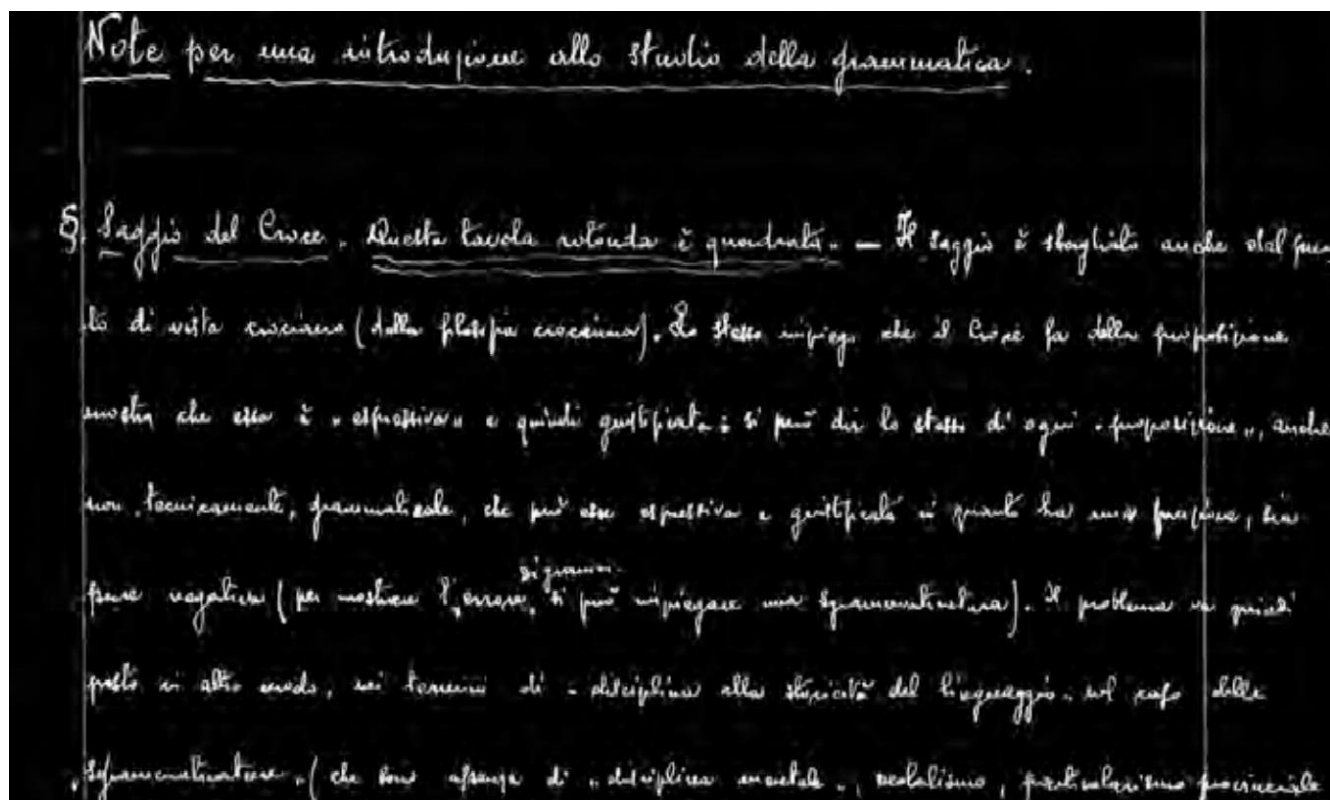 Note per una introduzione allo studio della grammatica.
§. Saggio del Croce „Questa tavola rotonda è quadrata„ — Il saggio è sbagliato anche dal pun
to di vista crociano (della filosofia crociana). Lo stesso impiego che il Croce fa della proposizione
mostra che essa è „espressiva„ e quindi giustificata: si può dir lo stesso di ogni „proposizione„, anche
non „tecnicamente„ grammaticale, che può esse espressiva e giustificata in quanto ha una funzione, sia
pure negativa (per mostrare l'„errore„ si può impiegare una sgrammaticatura). Il problema va quindi
posto in altro modo, nei termini di „disciplina alla storicità del linguaggio„ nel caso delle
„sgrammaticature„ (che sono assenza di „disciplina mentale„, neolalismo, particolarismo provinciale